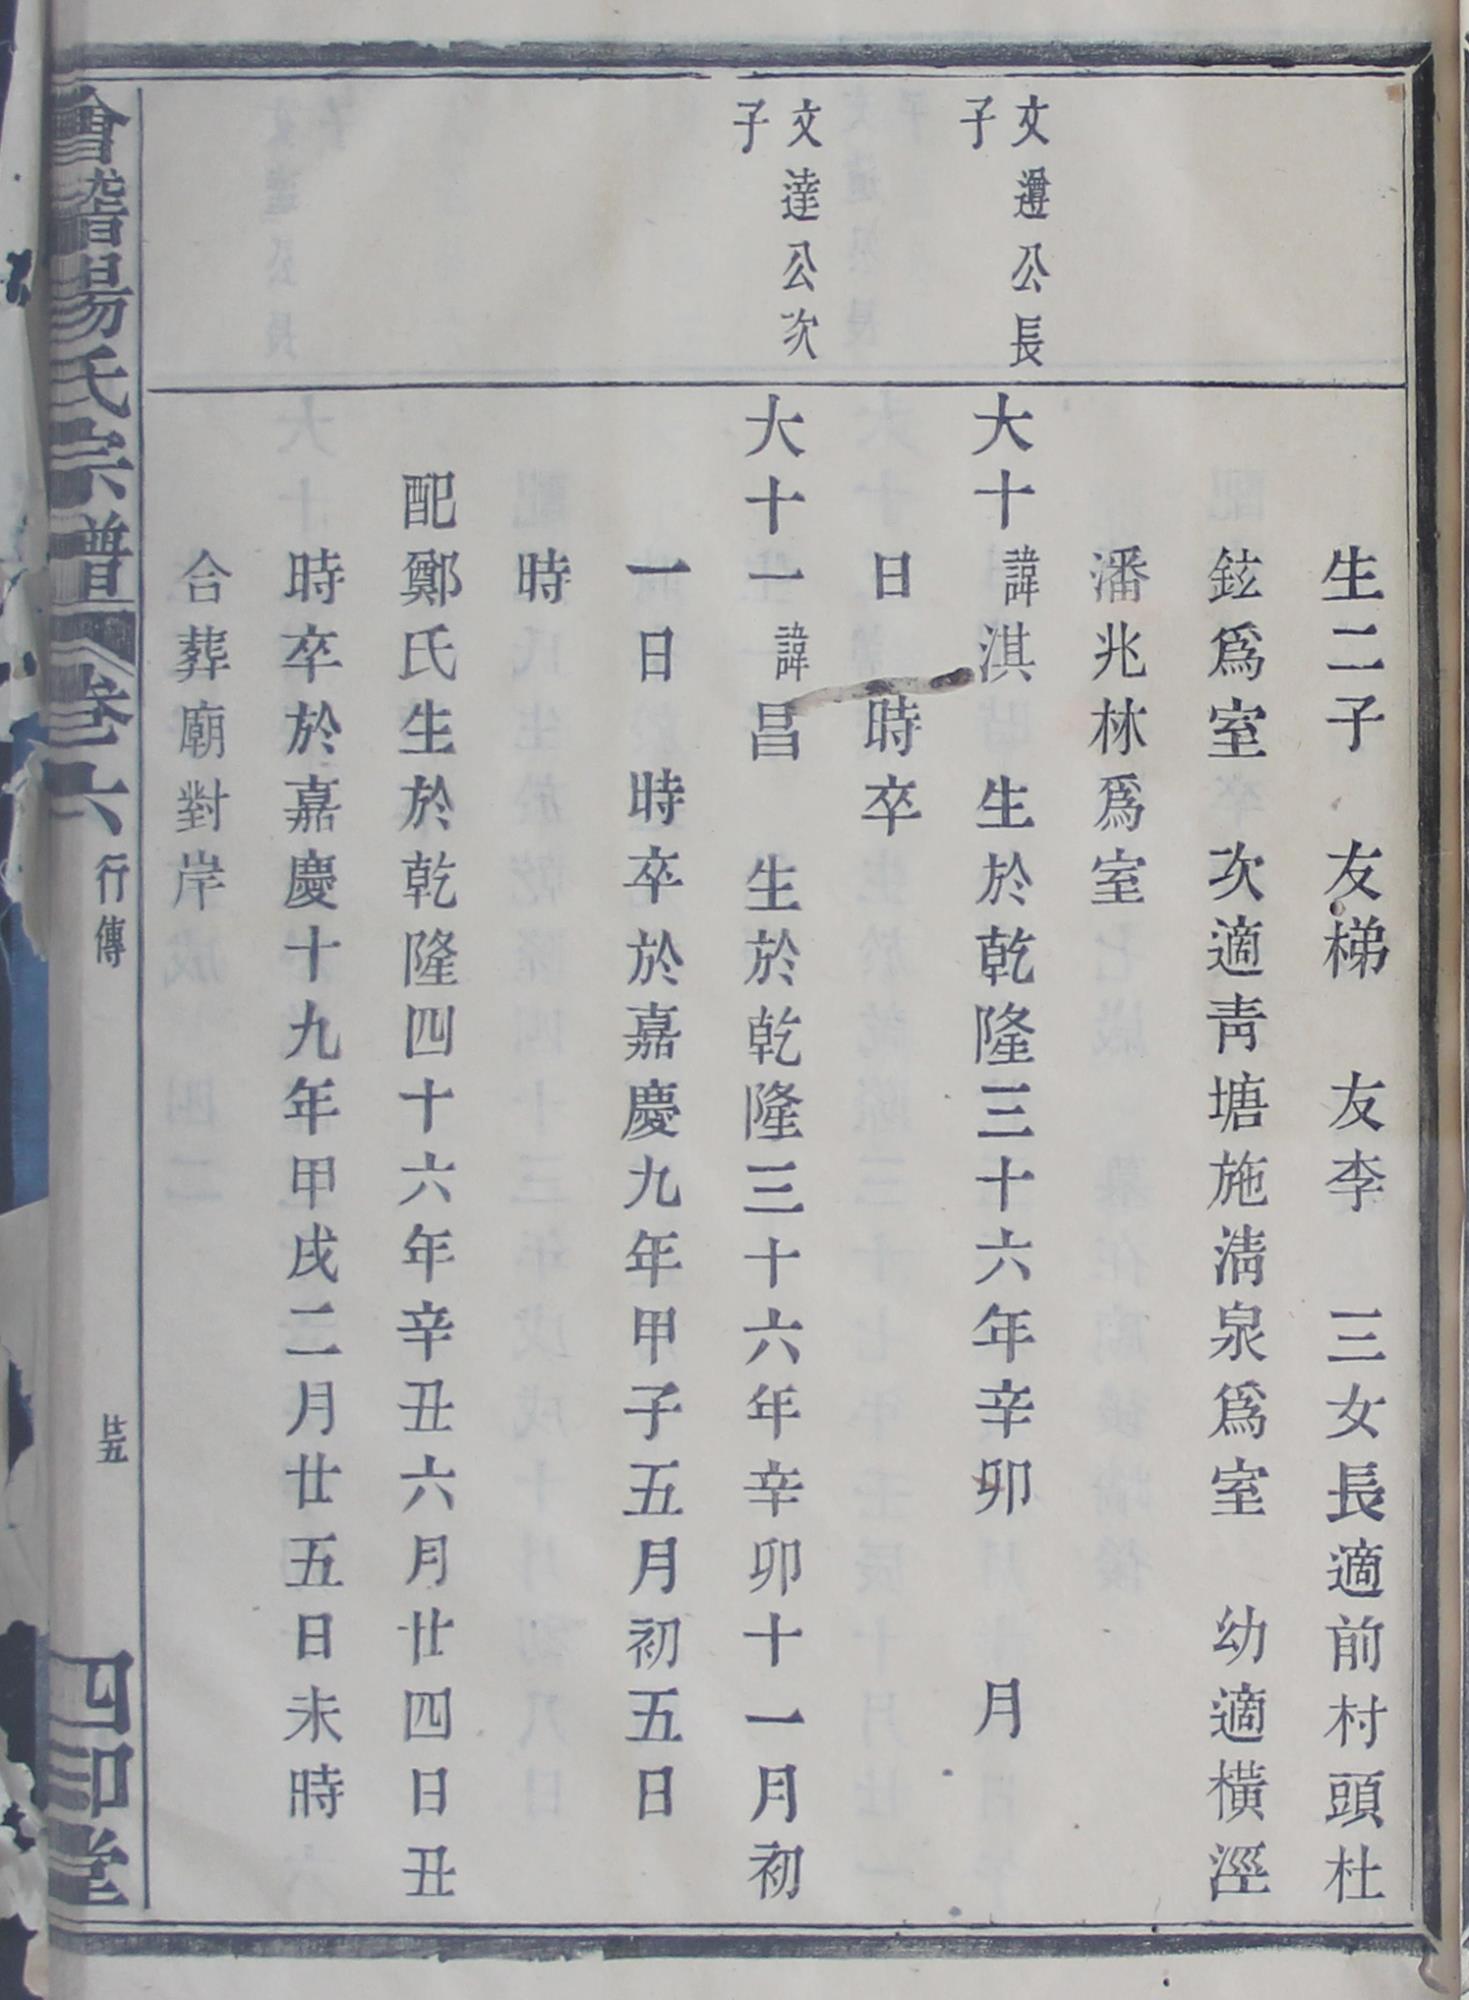 生二子　友梯　友李　三女長適前村頭杜
鉉爲室　次適靑塘施淸泉爲室　幼適橫涇
潘兆林爲室
文遵公長
子
大十諱淇　生於乾隆三十六年辛卯　月
日　時卒
文達公次
子
大十一諱昌　生於乾隆三十六年辛卯十一月初
一日　時卒於嘉慶九年甲子五月初五日
時
配鄭氏生於乾隆四十六年辛丑六月廿四日丑
時卒於嘉慶十九年甲戌二月廿五日未時
合葬廟對岸
會稽楊氏宗譜 卷六 行傳 廿五 四印堂